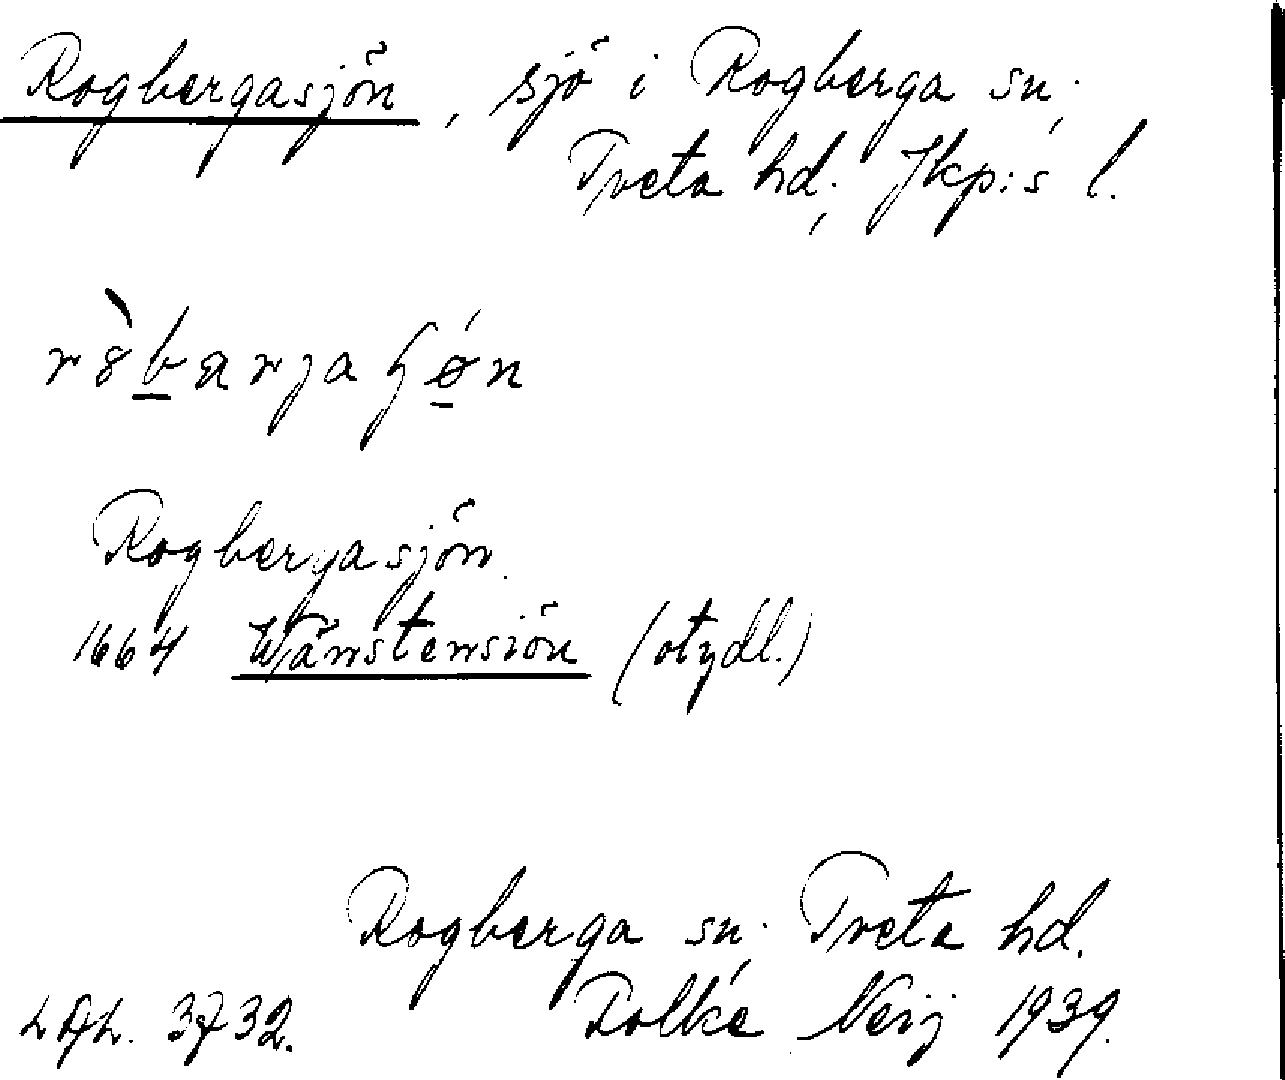 Rogbergasjön, sjö i Rogberga sn;
Tveta hd; Jkp:s l.
Rogbergasjön.
1664 Wånstensiön (otydl.)
Rogberga sn. Tveta hd.
3732. Folke Neij 1939.